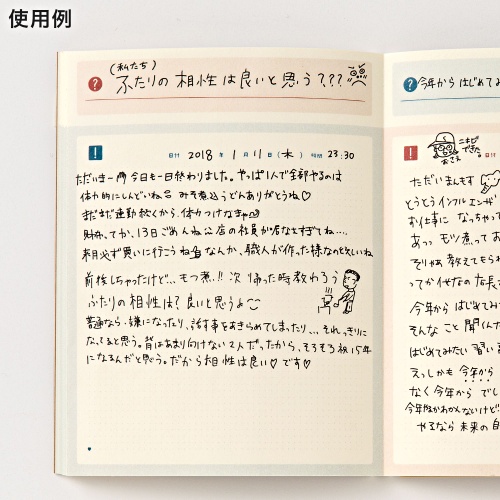 使用例
(私たち)
? ふたりの相性は良いと思う???
! 日付 2018年 1月 11日(木) 時間 23:30
ただいまー 今日も一日終わりました。やっぱ1人で全部やるのは
体力的にしんどいね みそ煮込うどんありがとうね♡
まだまだ運動続くから、体力つけなきゃ
財布、てか、13日ごめんね公店の社員が居なさすぎてね…
来月必ず買いに行こうね なんか、職人が作った様なのと欲しいね
前後しちゃったけど、、もつ煮!!次帰った時教わろう
ふたりの相性は?良いと思うよ〜
普通なら、嫌になったり、話す事をあきらめてしまったり、、、それっきりに
なってると思う。背はあまり向けない2人だったから、そろそろ祝15年
になるんだと思う。だからお相性は良い♡です♡
? 今年から はじめてみ
! 日 ニキビできた。
おさえ
ただいまんもす
とうとうインフルエンザ
お仕事に なっちゃって
あっ モツ煮って お
そりゃあ 教えてもら
ってか せなの 店長さ
今年から はじめて
そんな こと 聞くんだ
はじめてみたい 習い事
えっしかも 今年から
なく 今年から でし
今年度かわかんないけど
やるなら 未来の 自